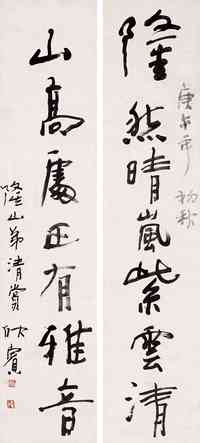 庚午年 初秋
隆然晴嵐紫雲清
山高處正有雅音
隆山弟清賞